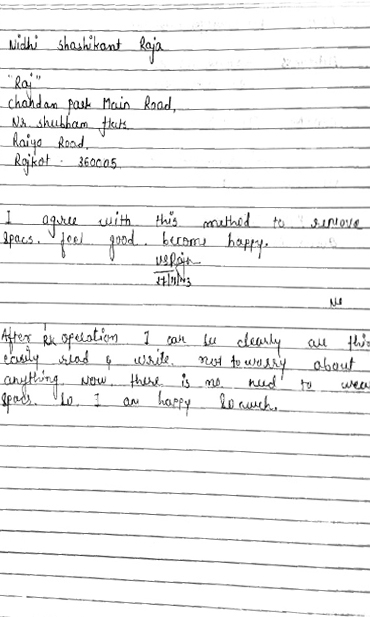 Nidhi Shashikant Raja
"Raj"
Chandan Park Main Road,
Nr. Shubham flats
Raiya Road,
Rajkot - 360005.
I agree with this method to remove
Spacs. feel good. become happy.
After operation I can see clearly all this
easily read & write. not to worry about
anything. Now there is no need to wear
Spacs. So I am happy So much.